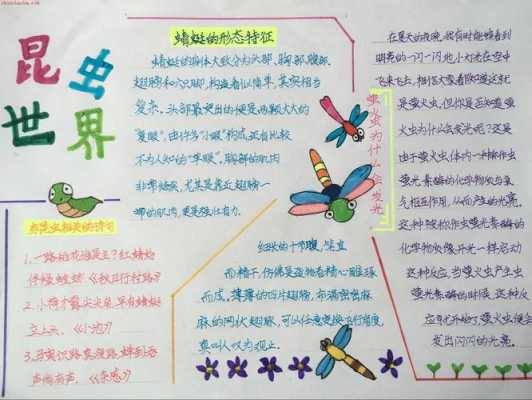 昆虫
世界
蜻蜓的形态特征
蜻蜓的躯体大致分为头部、胸部、腹部、
翅膀和六只脚，构造看似简单，其实相当
复杂。头部最突出的便是两颗大大的
“复眼”，由许多“小眼”构成，还有比较
不为人知的“单眼”，胸部的肌肉
非常结实，尤其是靠近翅膀一
带的肌肉，更是强壮有力。
与昆虫相关的诗句
1.一路的花谁是主？红蜻蛉
伴绿螳螂。《秋日行村路》
2.小荷才露尖尖角，早有蜻蜓
立上头。《小池》
声
红张的十
而精干，仿佛是造物者精心雕琢
而成，薄薄的四片翅膀，布满密密麻
麻的网状翅脉，可以任意变换飞行角度，
真叫人叹为观止。
萤火虫为什么会发光
在夏天的夜晚，我们有时能够看到
明亮的一闪一闪地小灯光在空中
飞来飞去，相信大家看
是萤火虫，但你是否知道萤
火虫为什么会发光呢？这是
由于萤火虫体内一种称作虫
萤光素酶的化学物质与氧
气相互作用，从而产生的光亮。
这种被称作虫萤光素酶的
化学物质像开关一样启动
这种反应，当萤火虫产生虫
萤光素酶的时候，这种反
应就开始了，萤火虫便会
发出闪闪的光亮。